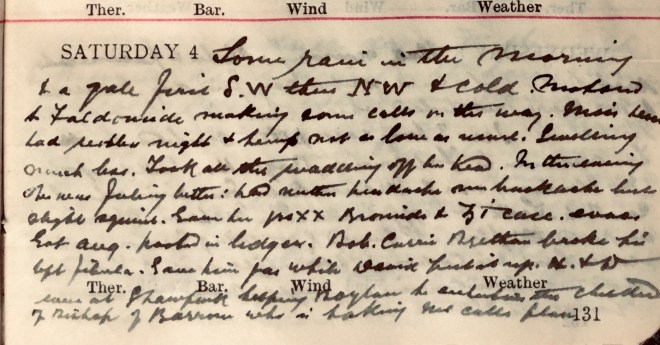 Ther. Bar. Wind Weather
SATURDAY 4 Some rain in the morning
& a gale first S.W then NW & cold. Motored
to Faldonside making some calls on the way. Miss
had restless night & temp not as low as usual. Swelling
much less. Took all the wadding off her head. In the evening
she was feeling better: had neither headache nor backache but
slight again. Gave her grs XX Bromide
Got aug. posted in ledger. Bob. Currie broke his
left fibula. Gave him gas while David put it up. H. & D
Ther. Bar. Wind Weather
were at helping Boylan to entertain the children
of Bishop of Barrow who is taking Mc calls place
131